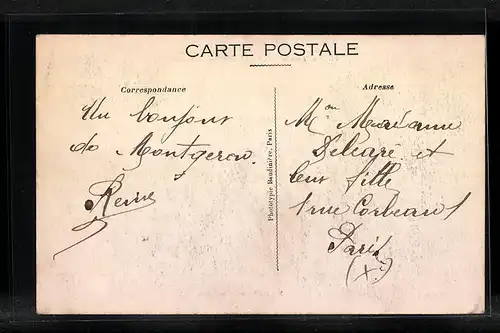 CARTE POSTALE
Correspondance
Un bonjour
de Montgeron.
Reine
Phototypie Baudinière, Paris
Adresse
Madame
et
leur fille
1 rue Corbeau 1
Paris
(Xe)